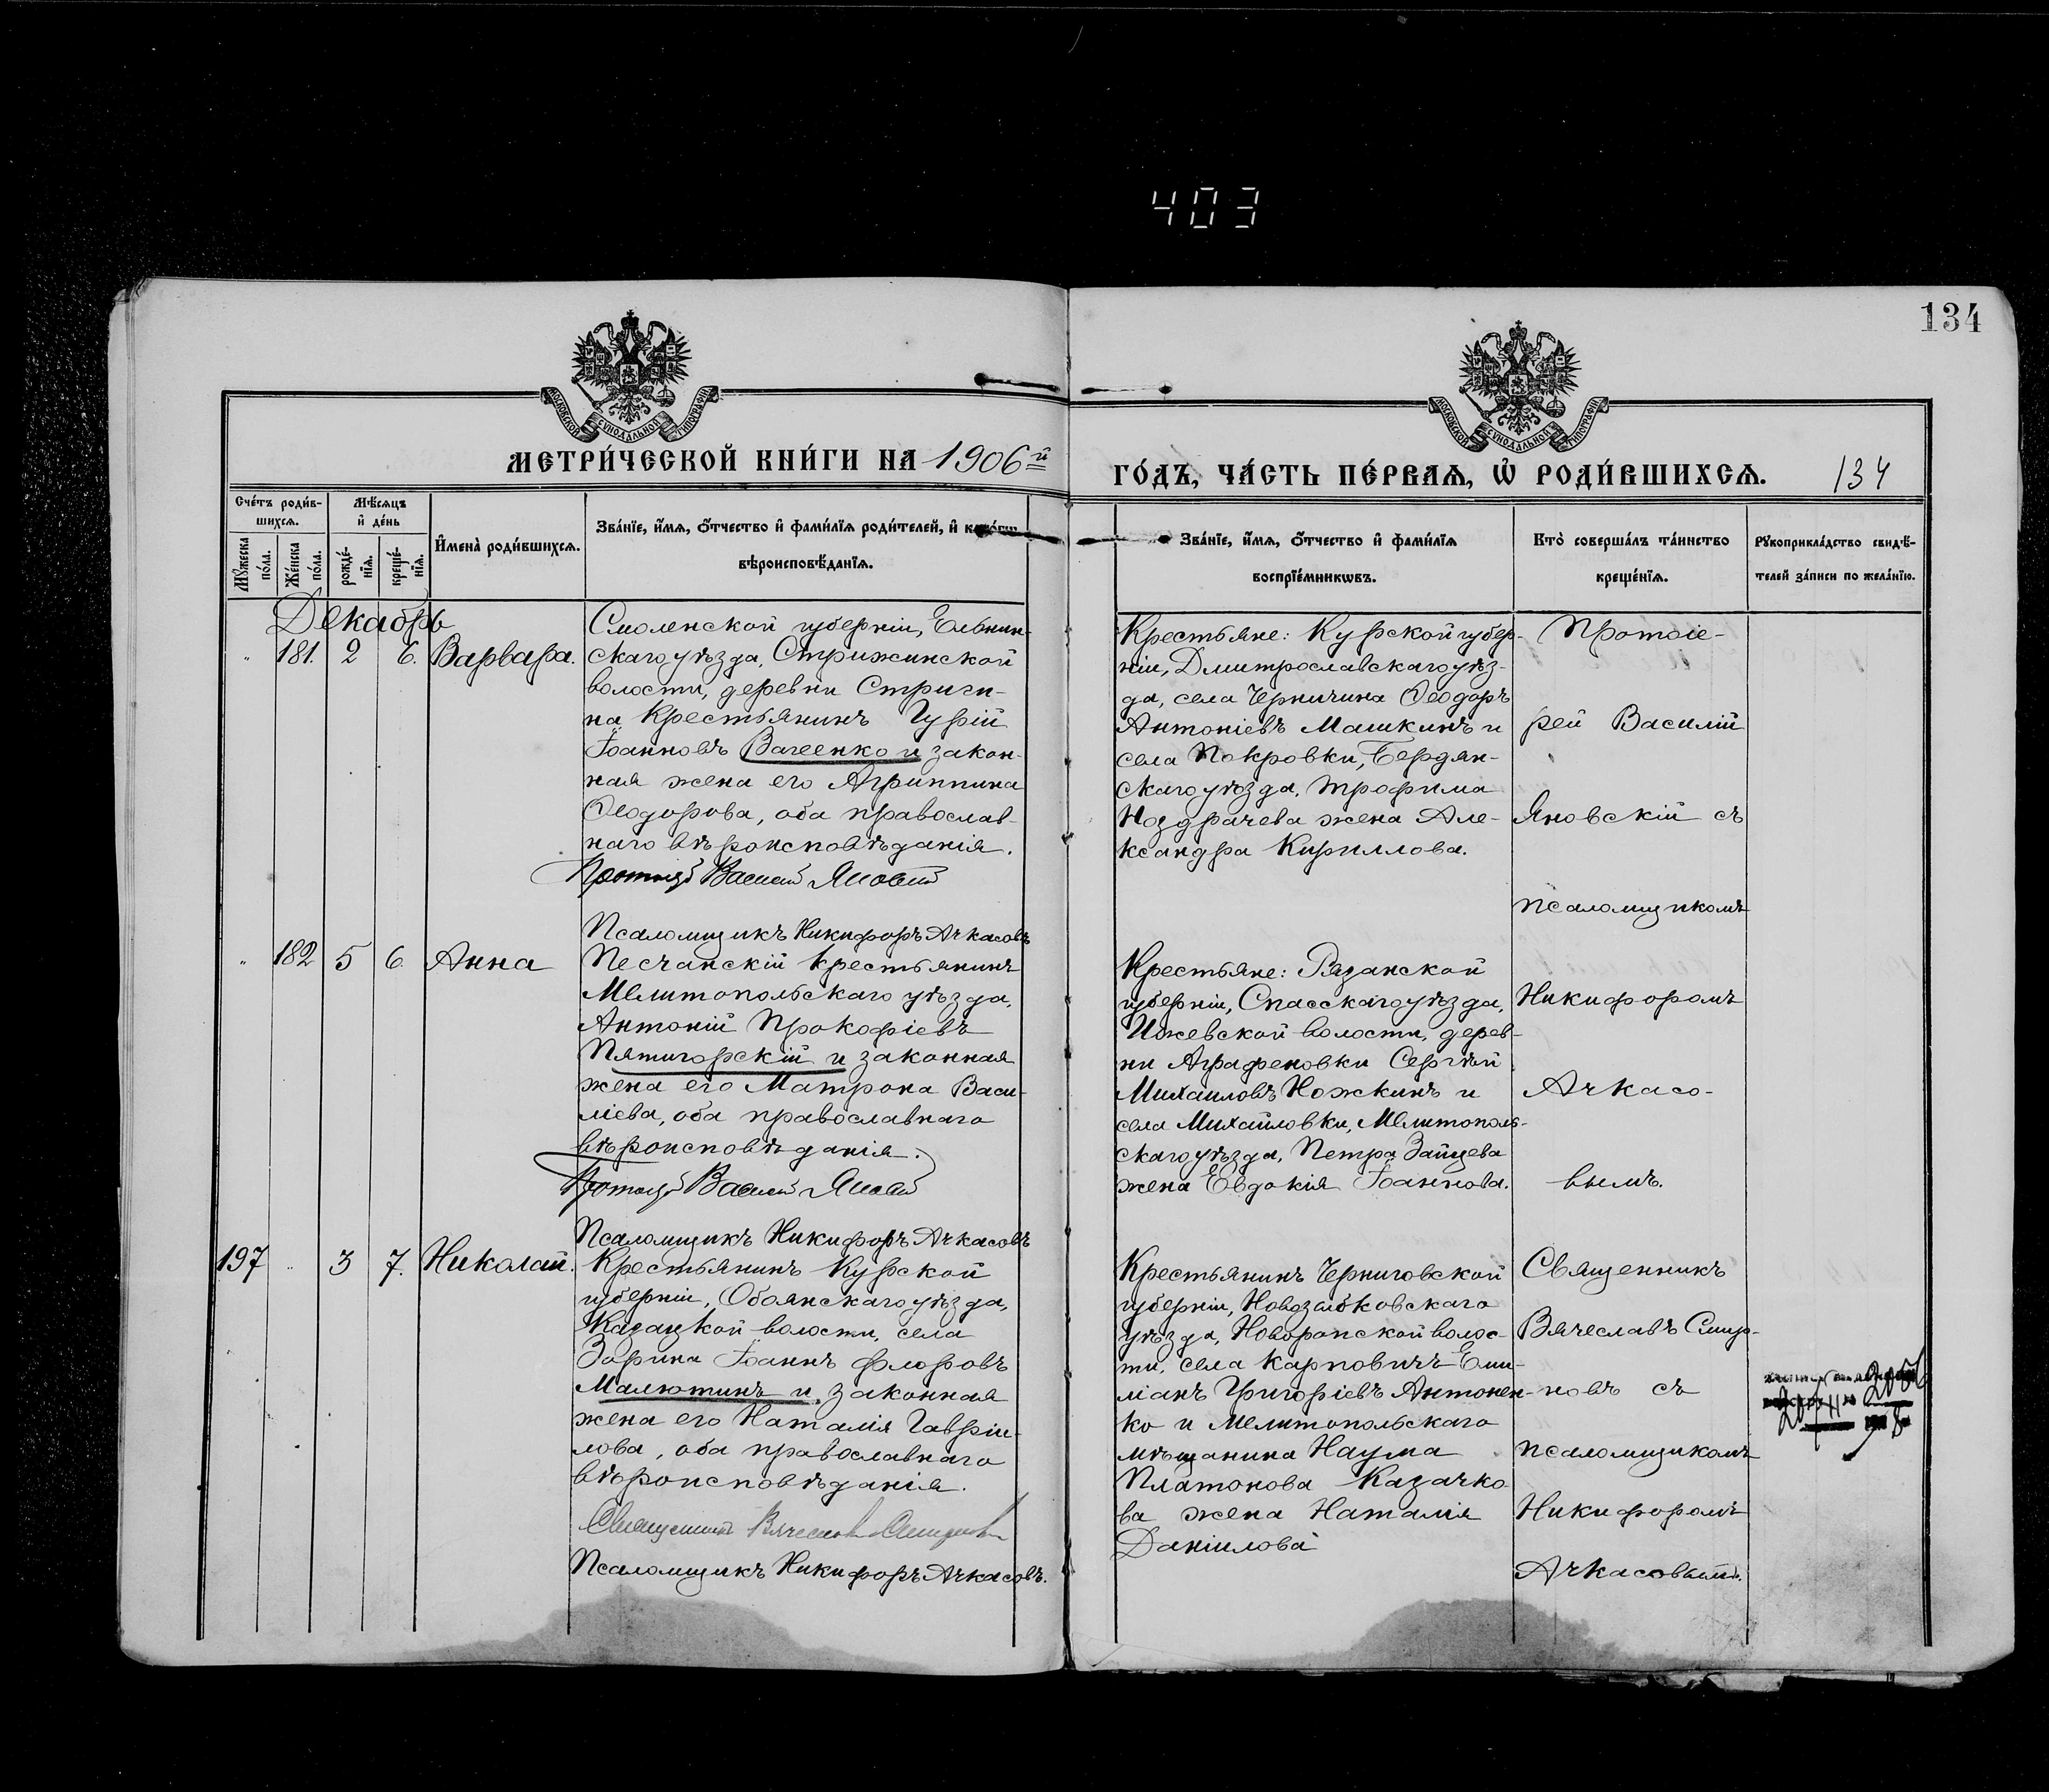 403
134
МОСКОВСКОЙ СУНОДАЛЬНОЙ ТИПОГРАФІИ
МОСКОВСКОЙ СУНОДАЛЬНОЙ ТИПОГРАФІИ
МЕТРИ́ЧЕСКОЙ КНИ́ГИ НА 1906й
ГО́ДЪ, ЧА́СТЬ ПЕ́РВАѦ, Ѽ РОДИ́ВШИХСѦ. 134
Сче́тъ роди́в-
шихсѧ.
Мѣ́сѧцъ
и҆ де́нь
Мꙋ́жеска
по́ла.
Же́нска
по́ла.
рожде́-
нїѧ.
креще́-
нїѧ.
И҆мена̀ роди́вшихсѧ.
Зва́нїе, и҆́мѧ, ѻ҆́тчество и҆ фами́лїѧ роди́телей, и҆
вѣроисповѣ́данїѧ.
Зва́нїе, и҆́мѧ, ѻ҆́тчество и҆ фами́лїѧ
воспрїе́мникѡвъ.
Кто̀ соверша́лъ та́инство
креще́нїѧ.
Рꙋкоприкла́дство свидѣ́-
телей за́писи по жела́нїю.
Декабрь
" 181. 2 6. Варвара.
Смоленской губерніи, Ельнин-
скаго уѣзда, Стрижинской
волости, деревни Стриги-
на крестьянинъ Гурій
Іоанновъ Ваченко и закон-
ная жена его Агриппина
Ѳеодорова, оба православ-
наго вѣроисповѣданія.
Протоіер Василій Яновскій
Псаломщикъ Никифоръ Ачкасовъ
Крестьяне: Курской губер-
ніи, Дмитрославскаго уѣз-
да, села Черничина Ѳеодоръ
Антоніевъ Машкинъ и
села Покровки, Бердян-
скаго уѣзда, Трофима
Ноздрачева жена Але-
ксандра Кириллова.
Протоіе-
рей Василій
Яновскій съ
псаломщикомъ
Никифоромъ
Ачкасо-
вымъ.
" 182 5 6. Анна
Песчанскій крестьянинъ
Мелитопольскаго уѣзда,
Антоній Прокофіевъ
Пятигорскій и законная
жена его Матрона Васи-
ліева, оба православнаго
вѣроисповѣданія.
Протоіер Василій Яновскій
Псаломщикъ Никифоръ Ачкасовъ
Крестьяне: Рязанской
губерніи, Спасскаго уѣзда,
Ижевской волости, дерев-
ни Аграфеновки Сергѣй
Михаиловъ Ножкинъ и
села Михайловки, Мелитополь-
скаго уѣзда, Петра Зайцева
жена Евдокія Іоаннова.
197 " 3 7. Николай.
Крестьянинъ Курской
губерніи, Обоянскаго уѣзда,
Казацкой волости, села
Зорина Іоаннъ Флоровъ
Малютинъ и законная
жена его Наталія Гавріи-
лова, оба православнаго
вѣроисповѣданія.
Священникъ Вячеславъ Смирновъ
Псаломщикъ Никифоръ Ачкасовъ.
Крестьянинъ Черниговской
губерніи, Новозыбковскаго
уѣзда, Новоропской волос-
ти, села Карповичъ Еми-
ліанъ Григоріевъ Антонен-
ко и Мелитопольскаго
мѣщанина Наума
Платонова Казачко
ва жена Наталія
Даніилова
Священникъ
Вячеславъ Смир-
новъ съ
псаломщикомъ
Никифоромъ
Ачкасовымъ.